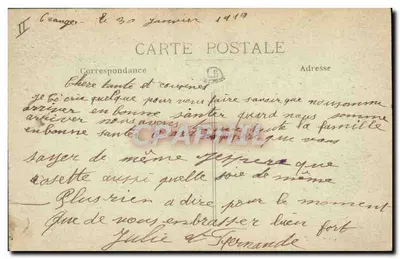 II
Orange le 30 Janvier 1919
CARTE POSTALE
Correspondance
Adresse
Chere tante et cousines
je vous faire savoir que nous somme
arriver en bonne santer quand nous somme
arriver nous avons la famille
en bonne que vous
soyer de même J'espere que
cosette aussi quelle soie de même
Plus rien a dire pour le moment
Que de vous embrasser bien fort
Julie et Fernande
CPAPHIL